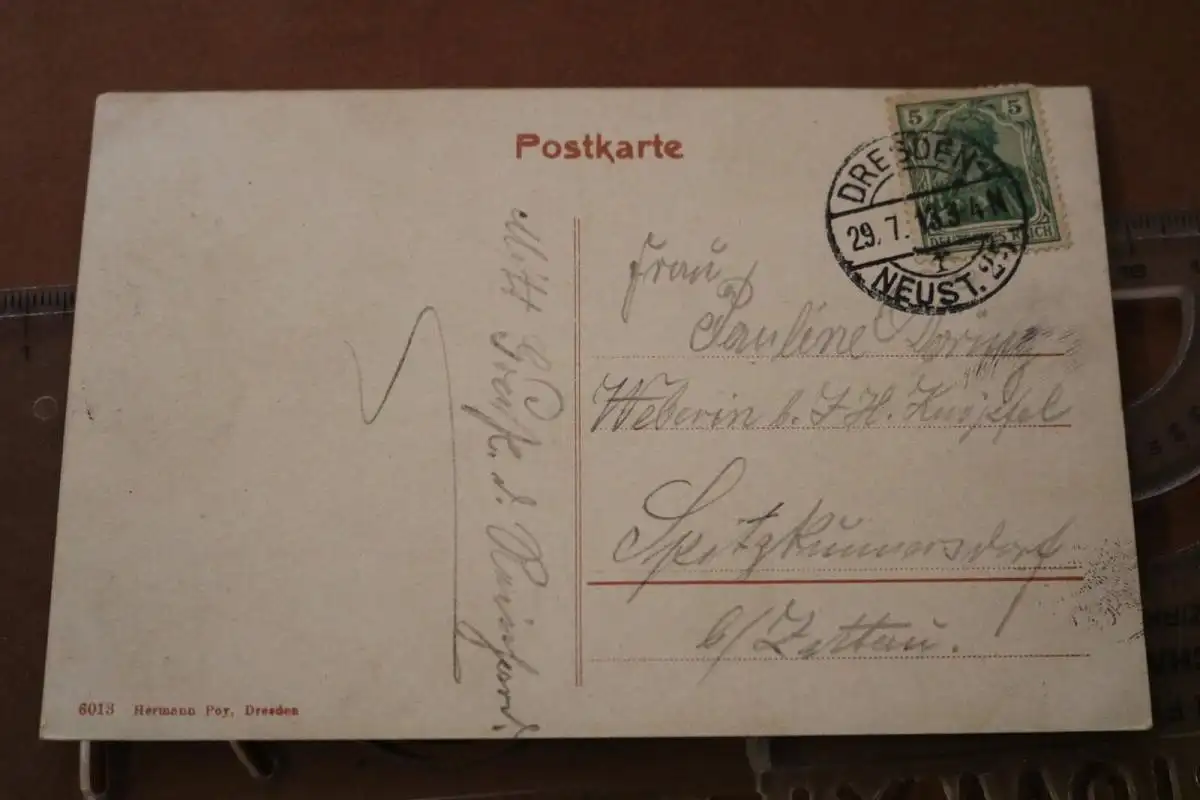 Postkarte
5 5
DEUTSCHES REICH
DRESDEN
29. 7. 13. 3-4 N
NEUST. 25
Frau
Pauline Döring
Weberin b. J. H.
Spitzkunnersdorf
b/Zittau.
Mitt Gruß. d.
6013 Hermann Poy, Dresden
1